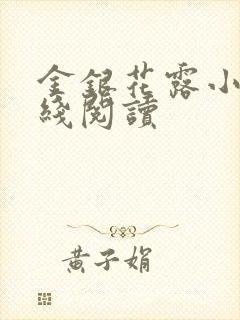 金銀花露小
綫閱讀
黃子娟